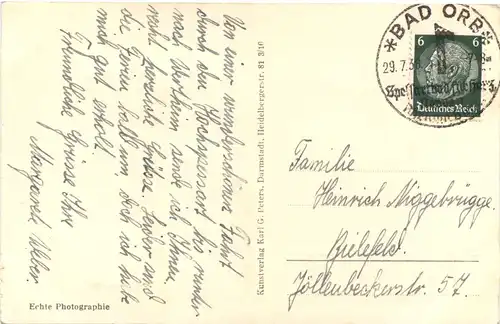 Von einer wunderschönen Fahrt
durch den Hochspessart bis runter
nach Wertheim sende ich Ihnen
recht herzliche Grüße. Leider sind
die Ferien bald um doch ich habe
mich gut erholt.
Freundliche Grüsse Ihre
Margarete Weber.
Echte Photographie
Kunstverlag Karl G. Peters, Darmstadt, Heidelbergerstr. 81 3/10
* BAD ORB
29.7.3
6 6
Deutsches Reich
Familie
Heinrich Niggebrügge.
Bielefeld.
Jöllenbeckerstr. 57.